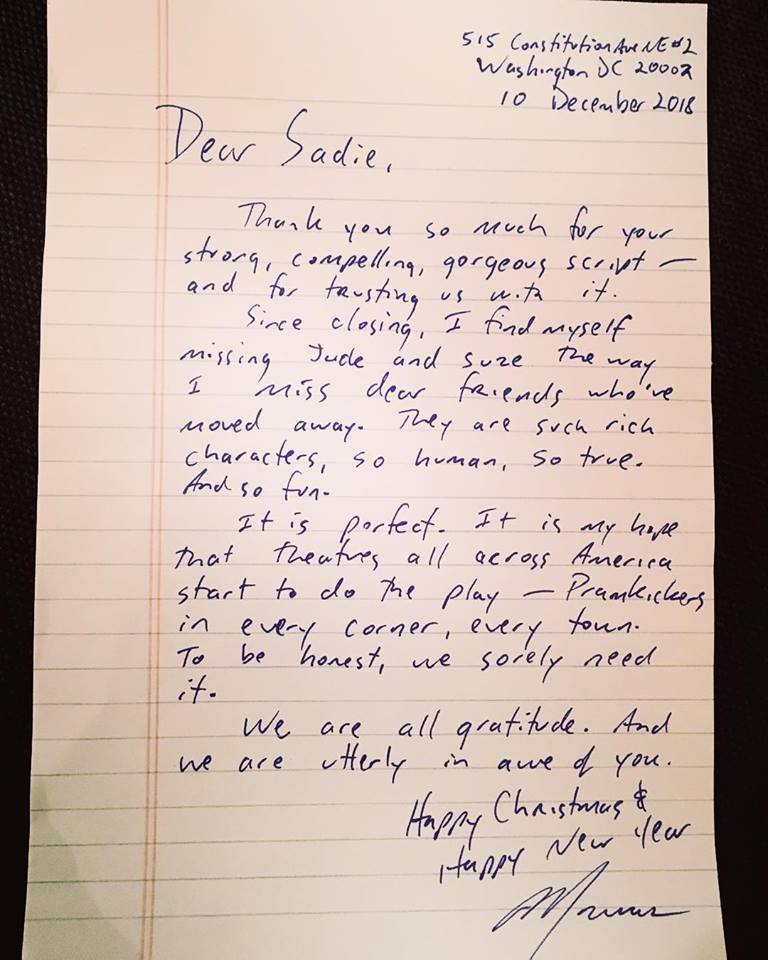 515 Constitution Ave NE #2
Washington DC 20002
10 December 2018
Dear Sadie,
Thank you so much for your
strong, compelling, gorgeous script —
and for trusting us with it.
Since closing, I find myself
missing Jude and Suze the way
I miss dear friends who've
moved away. They are such rich
characters, so human, so true.
And so fun.
It is perfect. It is my hope
that theatres all across America
start to do the play — Pramkickers
in every corner, every town.
To be honest, we sorely need
it.
We are all gratitude. And
we are utterly in awe of you.
Happy Christmas &
Happy New Year